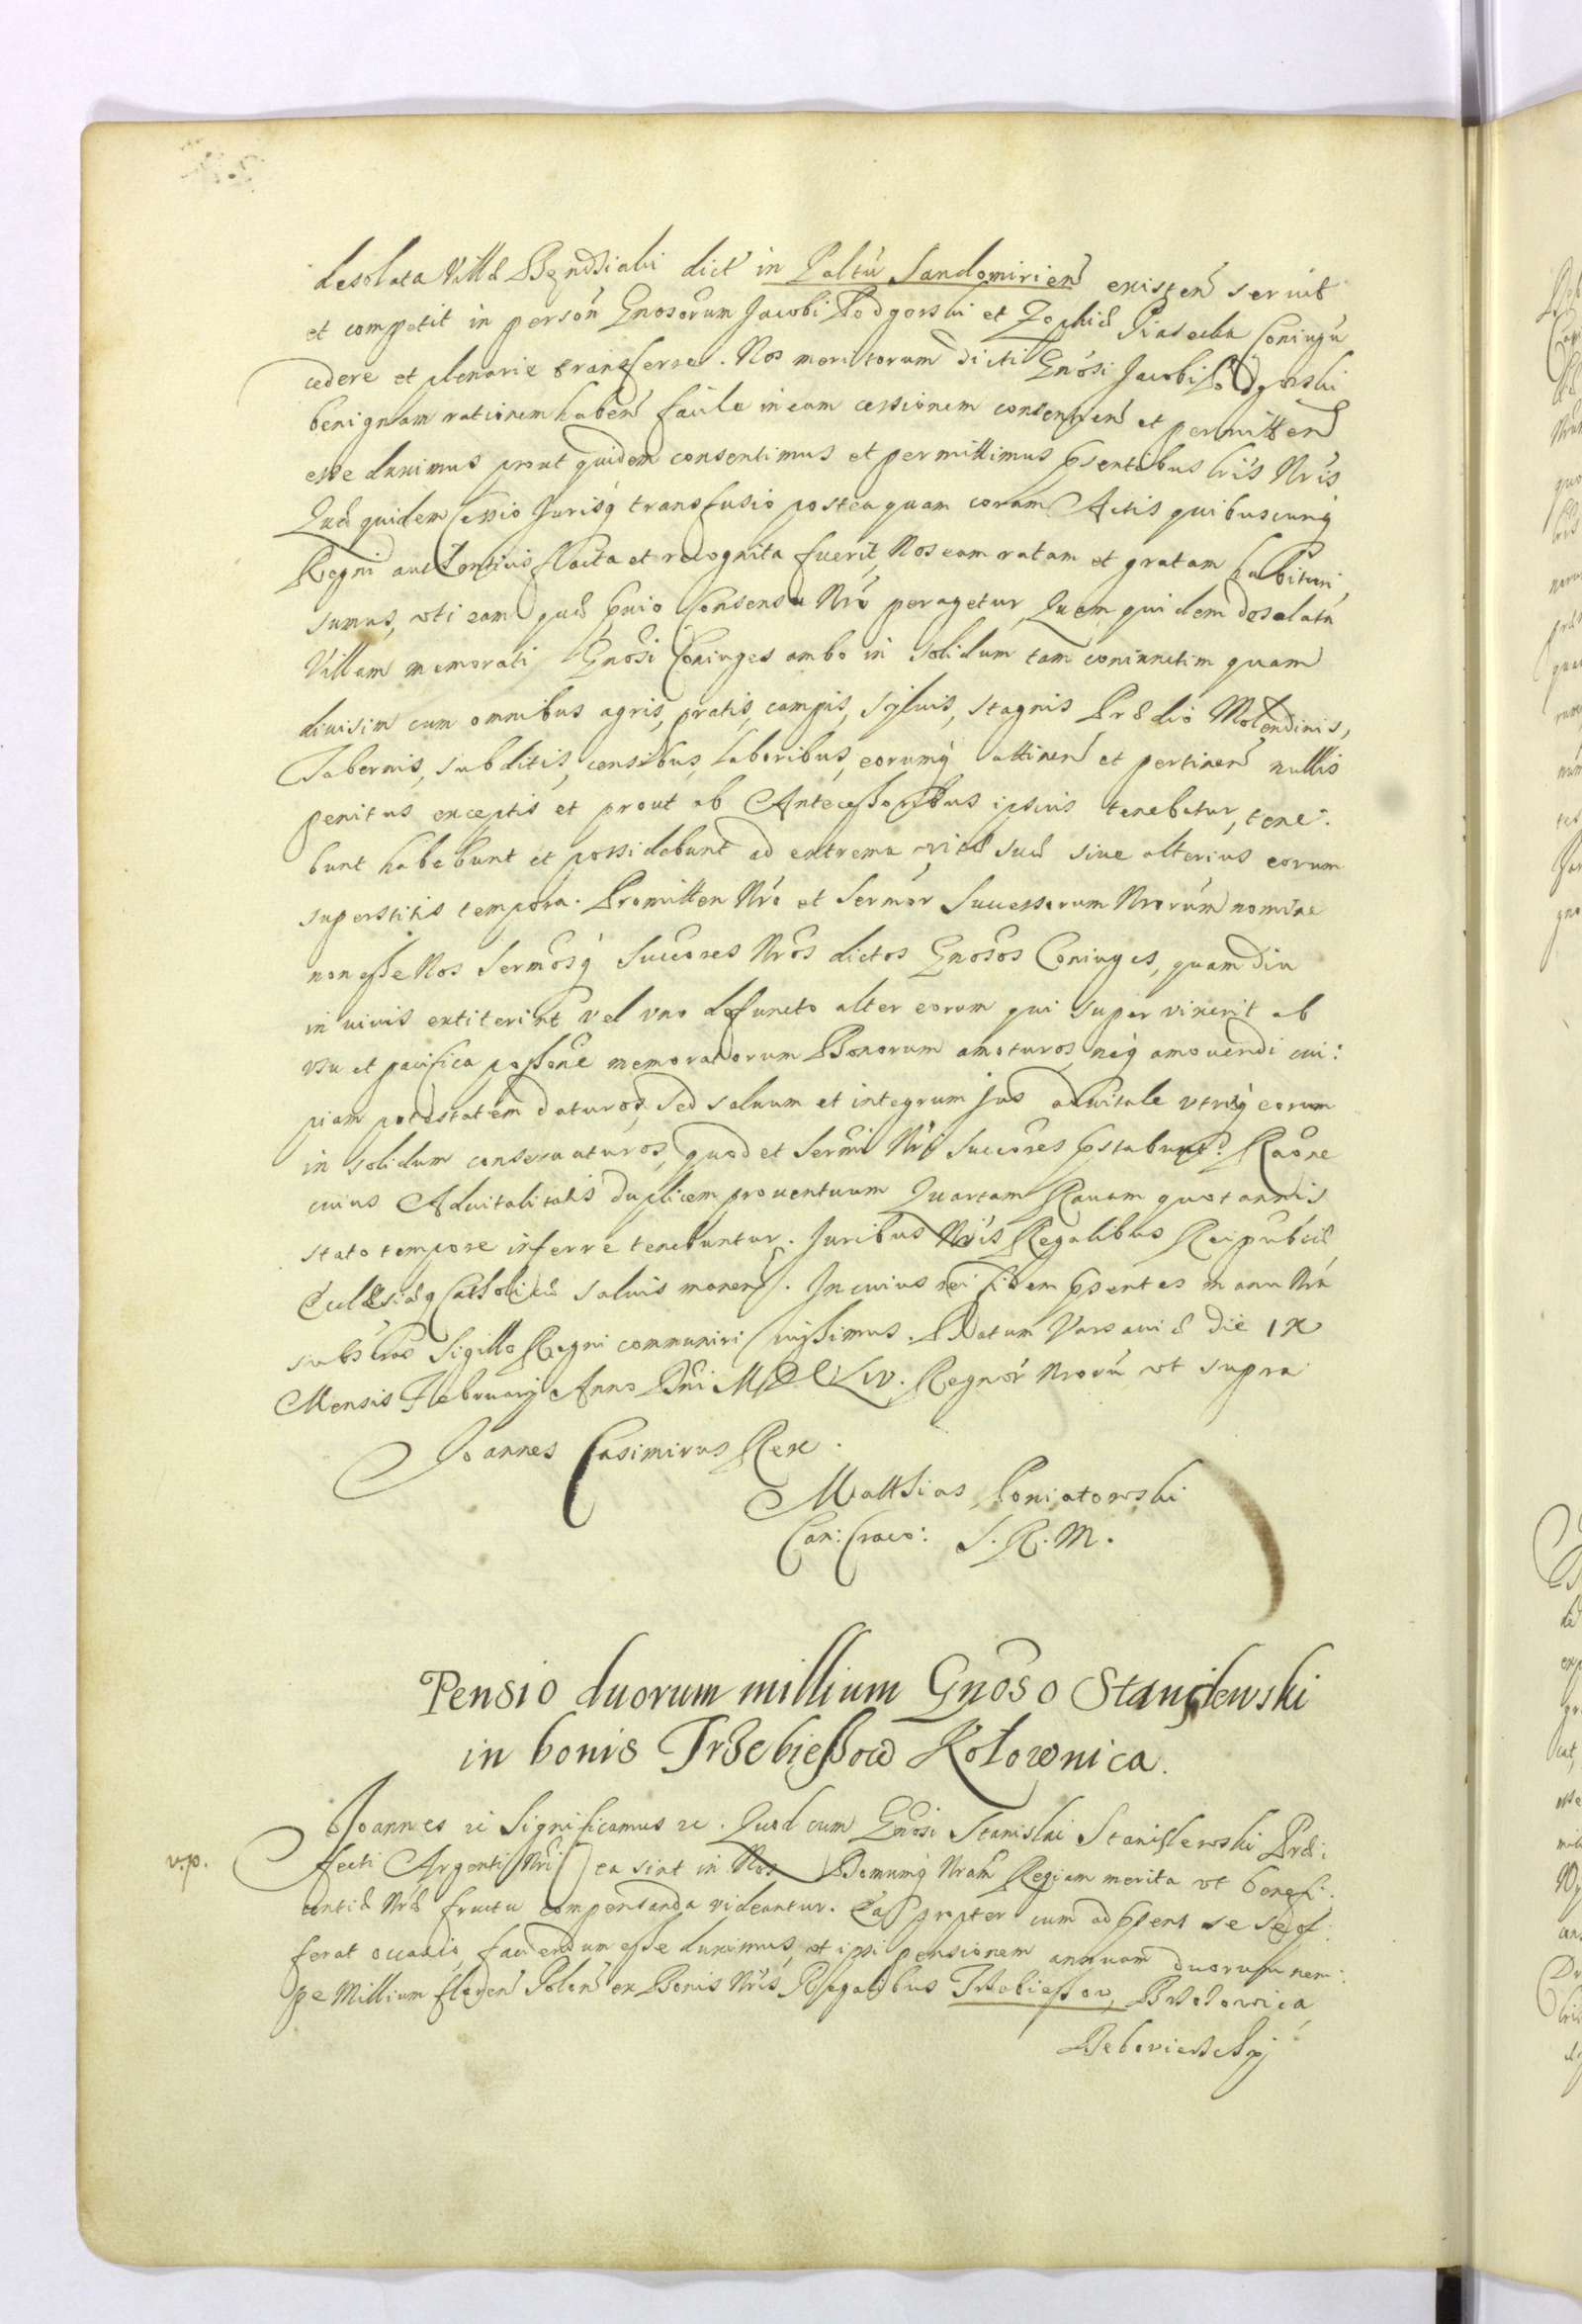 desolata Villa Bendziaki dict in Paltu Sandomirien existen servit
et competit in person Gnosorum Jacobi Podgorski et Zophiæ Piasecka Coniugu
cedere et plenarie transferre. Nos meritorum dicti Gnosi Jacobi Podgorski
benignam rationem haben facile in eam cessionem consentien et permitten
esse duximus prout quidem consentimus et permittimus psentibus lris Nris
Quæ quidem Cessio Jurisq transfusio postea quam coram Actis quibuscunq
Regni autenticis facta et recognita fuerit, Nos eam ratam et gratam habituri
sumus, uti eam quæ pvio Consensu Nro peragetur, Quam quidem desolatu
Villam memorati Gnosi Coniuges ambo in solidum tam coniunctim quam
divisim cum omnibus agris, pratis, campis, sylvis, stagnis Prædio Molendinis,
Tabernis, subditis, censibus, laboribus, eorumq attinen et pertinen nullis
penitus exceptis et prout ab Antecessoribus ipsius tenebatur, tene:
bunt habebunt et possidebunt ad extrema vitæ suæ sive alterius eorum
superstitis tempora. Promitten Nro et Sermor Successorum Nrorum nomine
non esse Nos Sermosq Succores Nros dictos Gnosos Coniuges, quamdiu
in vivis extiterint vel uno defuncto alter eorum qui supervixerit ab
usu et pacifica possone memoratorum Bonorum amoturos, neq amovendi cui:
piam potestatem daturos, sed salvum et integrum jus advitale utriq eorum
in solidum conservaturos, quod et Sermi Nri Succores pstabunt. Raone
cuius Advitalitatis duplicem proventuum Quartam Ravam quotannis
stato tempore inferre tenebuntur. Juribus Nris Regalibus Reipublicæ
Ecclesiæq Catholicæ salvis manen. In cuius rei fidem psentes manu Nra
subscras Sigillo Regni communiri iussimus. Datum Varsaviæ die IX
Mensis February Anno Dni MDCLIV. Regnor Nroru ut supra
Joannes Casimirus Rex.
Matthias Poniatowski
Can: Craco: S. R. M.
Pensio duorum millium Gnoso Stanislewski
in bonis Trzebieszow Kolownica.
Joannes ec Significamus ec. Quod cum Gnosi Stanislai Stanislewski Præ:
v.p.
fecti Argenti Nri ea sint in Nos Domumq Nram Regiam merita ut benefi:
centiæ Nræ fructu compensanda videantur. Ea propter cum ad psens se se of:
ferat occasio, faciendum esse duximus, ut ipsi pensionem annuam duorum nem:
pe Millium floren Polon ex Bonis Nris Regalibus Trzebieszow, Brzozowica,